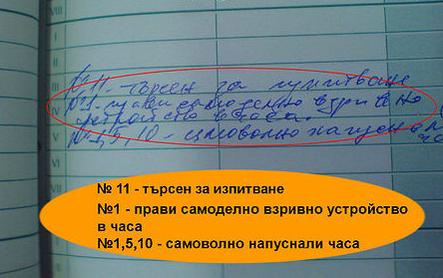 VIII
I
№11 - търсен за изпитване
№1 - прави самоделно взривно
устройство в часа.
№1,5,10 - самоволно напуснали
часа
V
VI
VII
№ 11 - търсен за изпитване
№1 - прави самоделно взривно устройство
в часа
№1,5,10 - самоволно напуснали часа